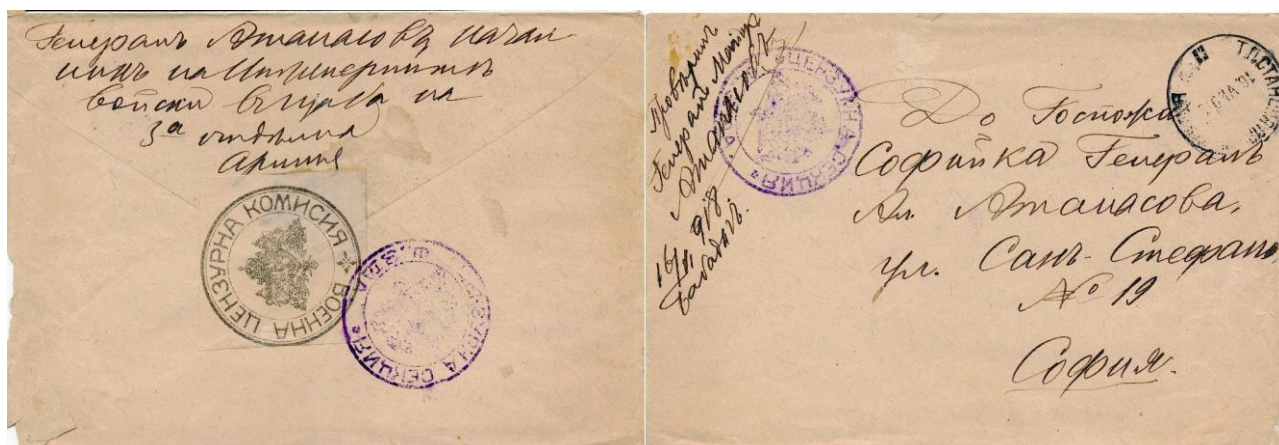 Генералъ Атанасовъ началникъ
на Инженернитѣ
войски въ щаба на
3а отдѣлна
армия
ВОЕННА ЦЕНЗУРНА КОМИСИЯ
СЕКЦИЯ
Провѣрилъ
Генералъ Майоръ
Атанасовъ
16/II 918
Бабадагъ.
ЦЕНЗУРНА СЕКЦИЯ
До Госпожа
Софийка Генералъ
Ал. Атанасова,
ул. Санъ-Стефано,
№ 19
София.